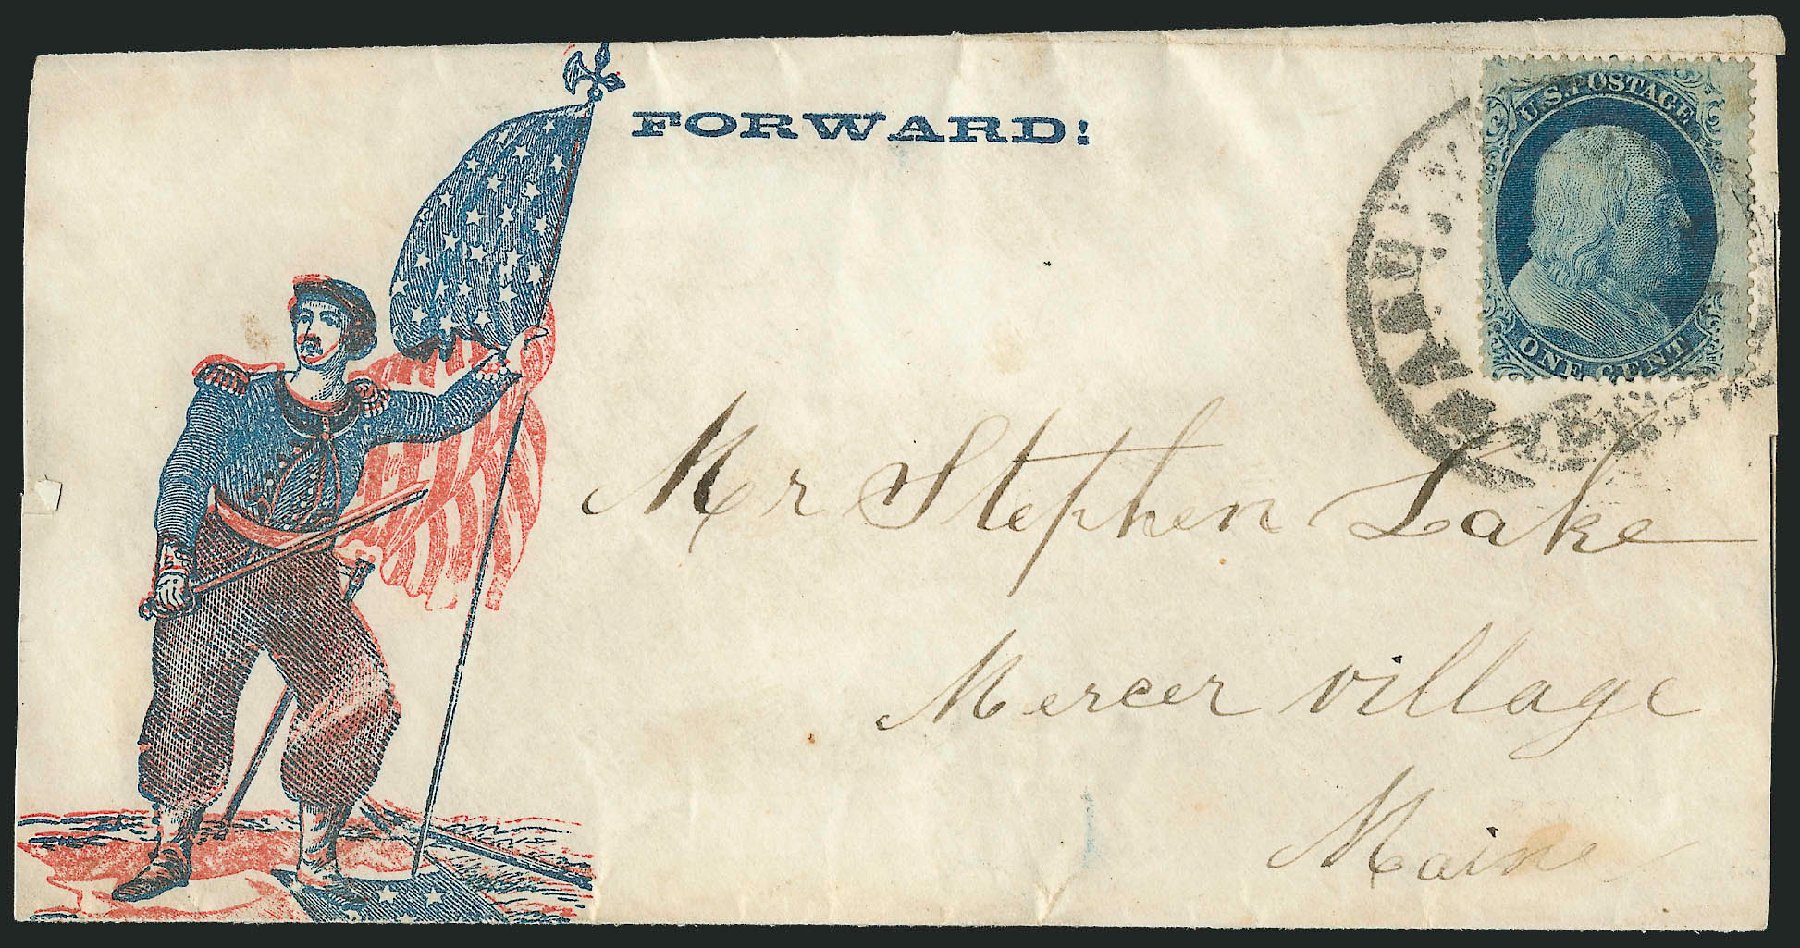 FORWARD!
U.S. POSTAGE
ONE CENT
Mr Stephen Lake
Mercer village
Maine